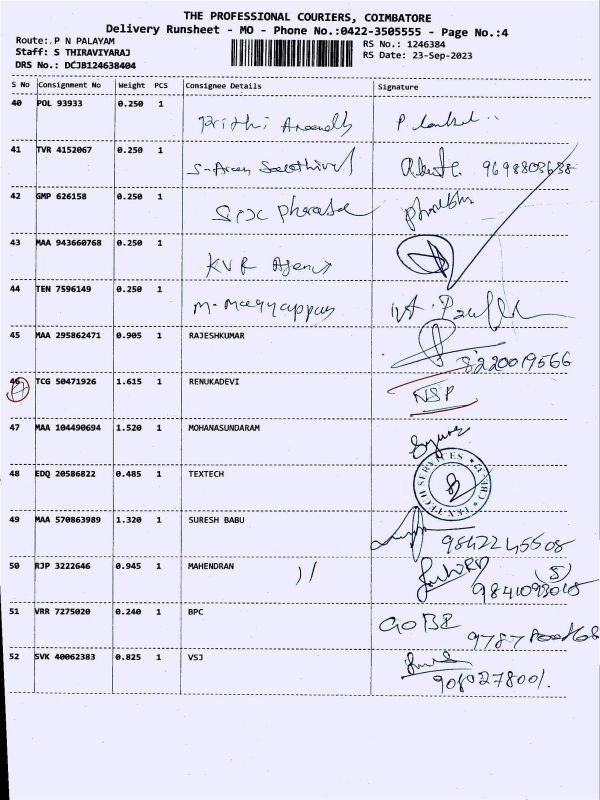 THE PROFESSIONAL COURIERS, COIMBATORE
Delivery Runsheet - MO - Phone No.:0422-3505555 - Page No.:4
Route: P N PALAYAM
Staff: S THIRAVIYARAJ
DRS No.: DCJB124638404
RS No.: 1246384
RS Date: 23-Sep-2023
S No Consignment No Weight PCS Consignee Details Signature
40 POL 93933 0.250 1
41 TVR 4152067 0.250 1 9698803638
42 GMP 626158 0.250 1
43 MAA 943660768 0.250 1 KVR Agency
44 TEN 7596149 0.250 1
45 MAA 295862471 0.905 1 RAJESHKUMAR 8220019566
46 TCG 50471926 1.615 1 RENUKADEVI NSP
47 MAA 104490694 1.520 1 MOHANASUNDARAM
48 EDQ 20586822 0.485 1 TEXTECH TEX-TECH SERVICES
49 MAA 570863989 1.320 1 SURESH BABU 9842245508
50 RJP 3222646 0.945 1 MAHENDRAN
51 VRR 7275020 0.240 1 BPC
52 SVK 40062383 0.825 1 VSJ